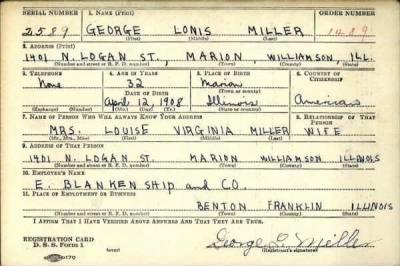 SERIAL NUMBER 1. NAME (Print) ORDER NUMBER
2589 GEORGE LONIS MILLER 1489
(First) (Middle) (Last)
2. ADDRESS (Print)
1401 N. LOGAN ST., MARION, WILLIAMSON, ILL.
(Number and street or R. F. D. number) (Town) (County) (State)
3. TELEPHONE 4. AGE IN YEARS 5. PLACE OF BIRTH 6. COUNTRY OF CITIZENSHIP
None 32 Marion
DATE OF BIRTH (Town or county)
April 12, 1908 Illinois American
(Exchange) (Number) (Mo.) (Day) (Yr.) (State or country)
7. NAME OF PERSON WHO WILL ALWAYS KNOW YOUR ADDRESS 8. RELATIONSHIP OF THAT PERSON
MRS. LOUISE VIRGINIA MILLER WIFE
(Mr., Mrs., Miss) (First) (Middle) (Last)
9. ADDRESS OF THAT PERSON
1401 N. LOGAN ST. MARION WILLIAMSON ILLINOIS
(Number and street or R. F. D. number) (Town) (County) (State)
10. EMPLOYER'S NAME
E. BLANKENSHIP and CO.
11. PLACE OF EMPLOYMENT OR BUSINESS
BENTON FRANKLIN ILLINOIS
(Number and street or R. F. D. number) (Town) (County) (State)
I AFFIRM THAT I HAVE VERIFIED ABOVE ANSWERS AND THAT THEY ARE TRUE.
REGISTRATION CARD
D. S. S. Form 1 (over) George L. Miller
(Registrant's signature)